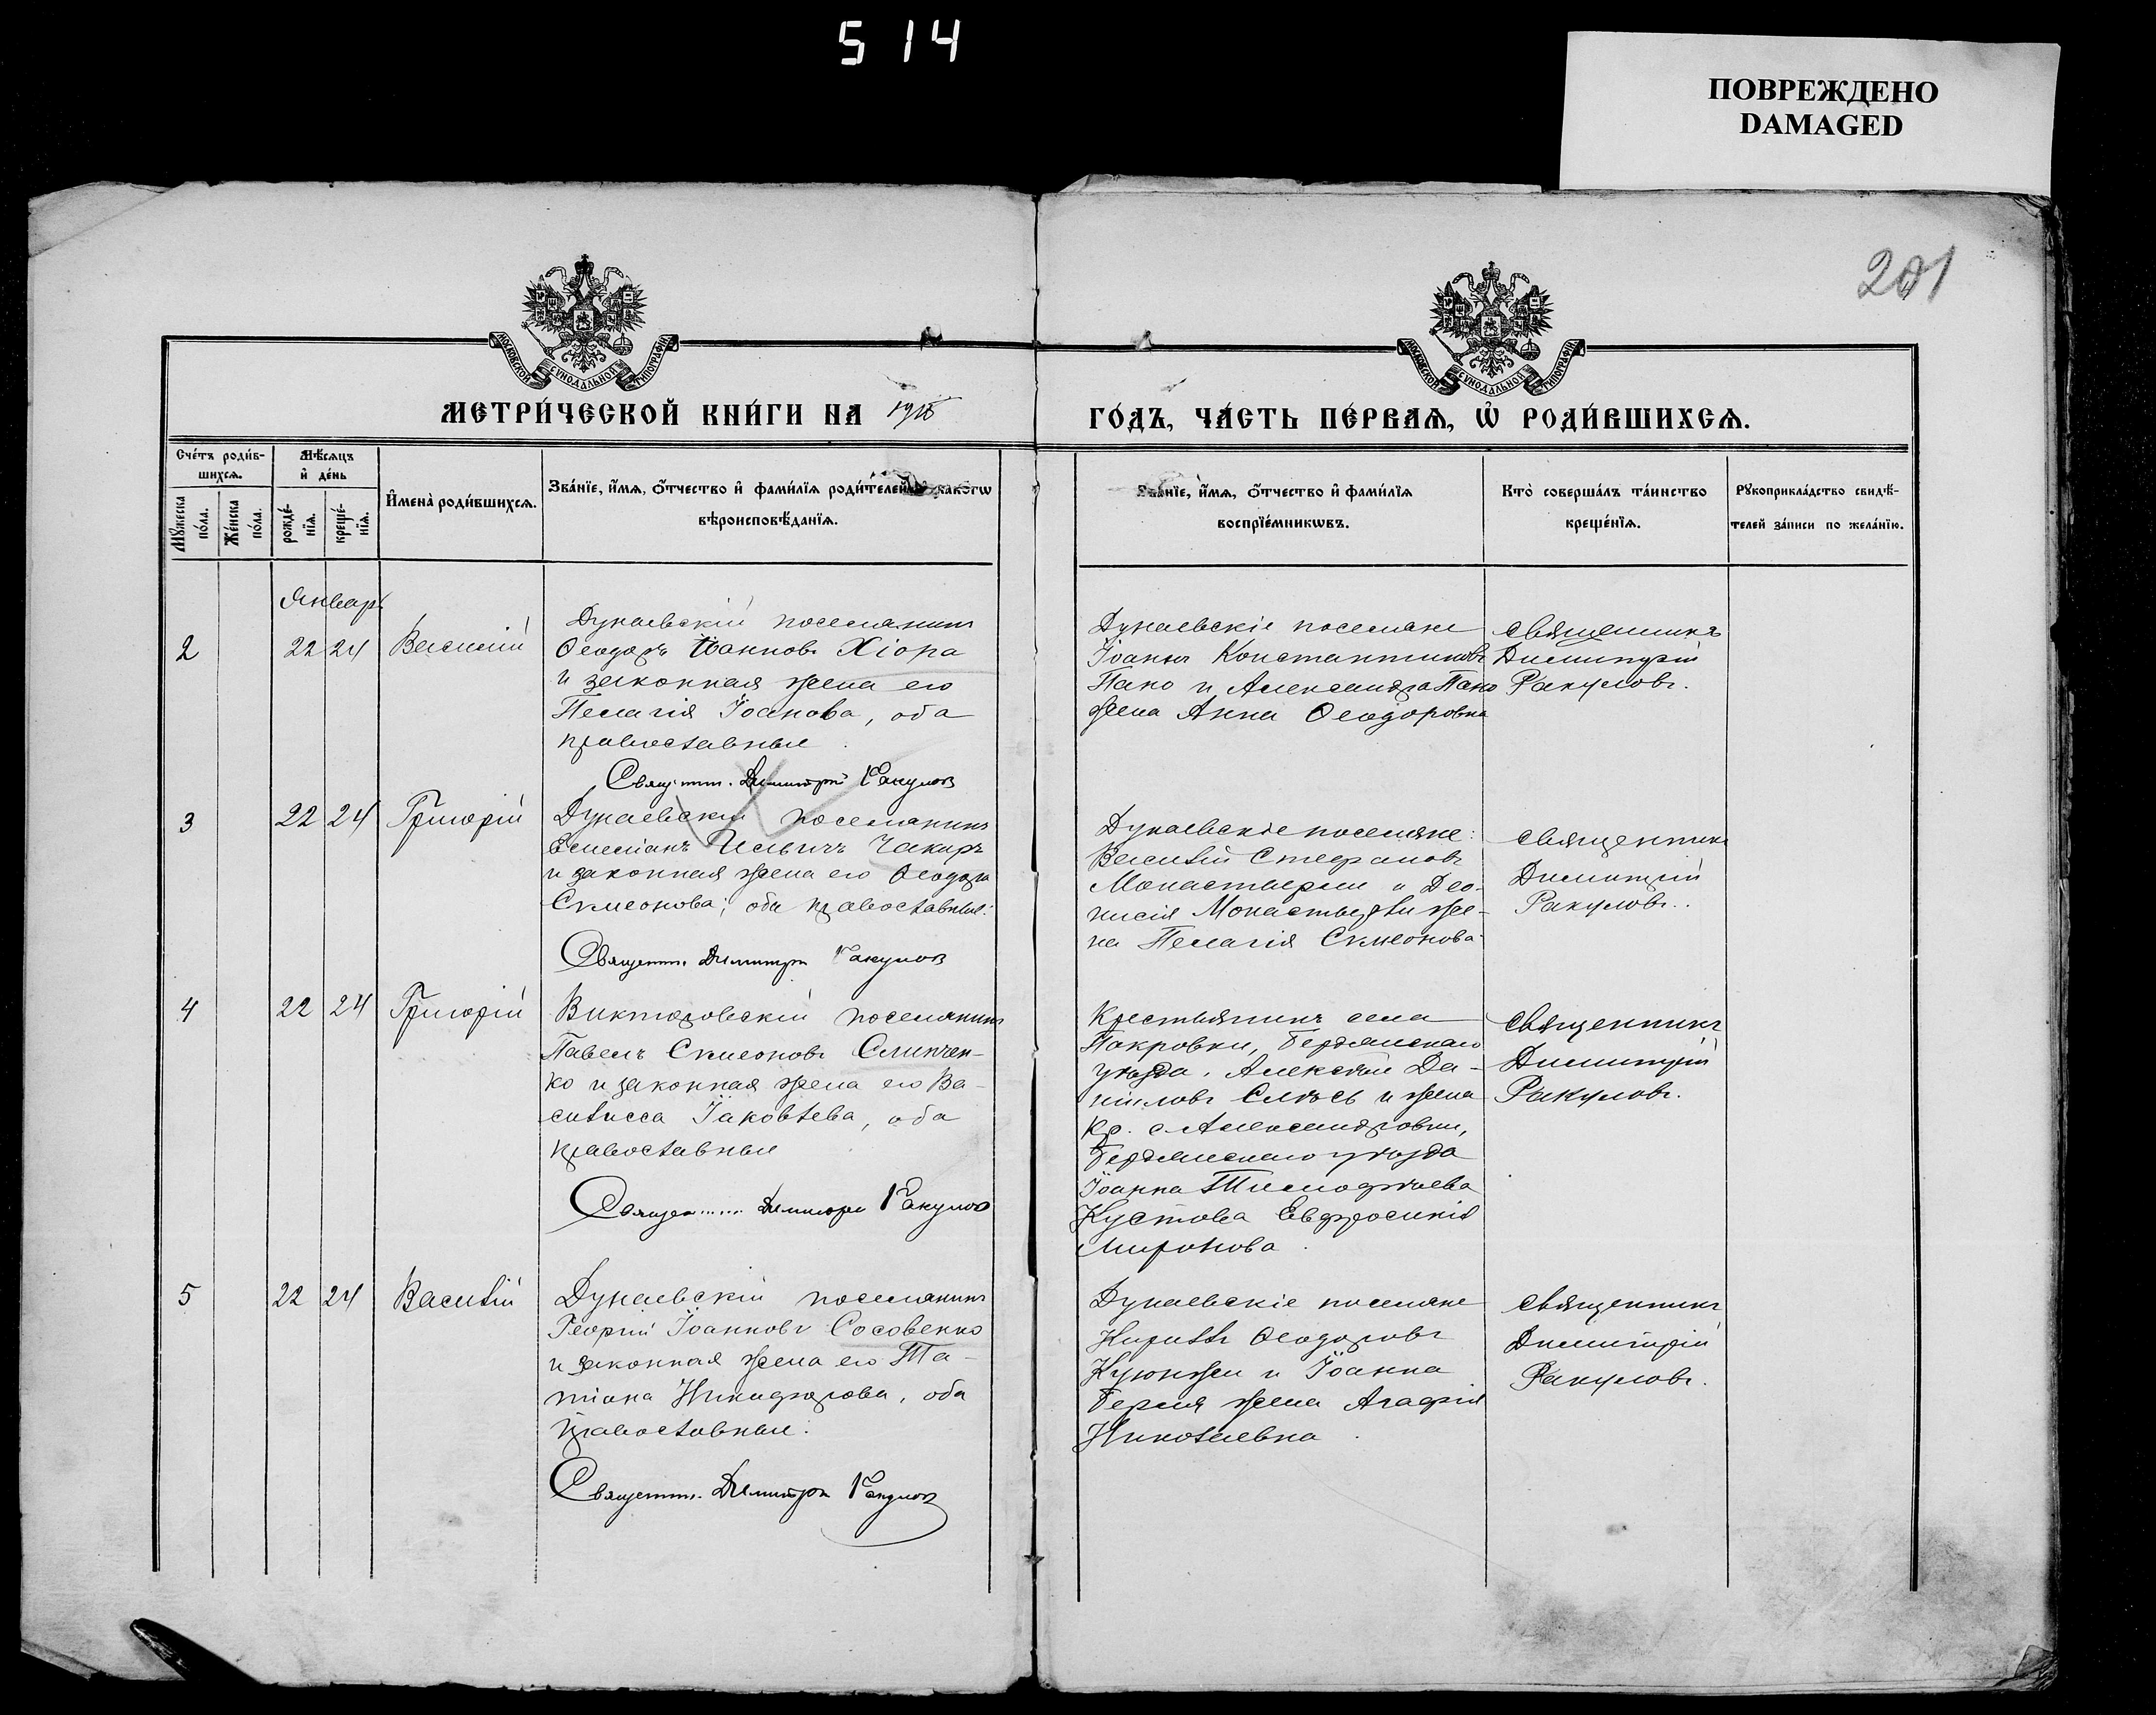 514
ПОВРЕЖДЕНО
DAMAGED
201
МОСКОВСКОЙ СѴНОДАЛЬНОЙ ТИПОГРАФІИ
МОСКОВСКОЙ СѴНОДАЛЬНОЙ ТИПОГРАФІИ
МЕТРИ́ЧЕСКОЙ КНИ́ГИ НА
ГО́ДЪ, ЧА́СТЬ ПЕ́РВАѦ, Ѡ҆ РОДИ́ВШИХСѦ.
Сче́тъ роди́в-
шихсѧ.
Мꙋ́жеска
по́ла.
Же́нска
по́ла.
Мѣ́сѧцъ
и҆ де́нь
рожде́-
нїѧ.
креще́-
нїѧ.
И҆мена̀ роди́вшихсѧ.
Зва́нїе, и҆́мѧ, ѻ҆́тчество и҆ фами́лїѧ роди́телей, и҆ како́гѡ
вѣроисповѣ́данїѧ.
Зва́нїе, и҆́мѧ, ѻ҆́тчество и҆ фами́лїѧ
воспрїе́мникѡвъ.
Кто̀ соверша́лъ та́инство
креще́нїѧ.
Рꙋкоприкла́дство свидѣ́-
телей за́писи по жела́нїю.
Январь
2 22 24 Василій
Дунаевскій поселянинъ
Ѳеодоръ Іоанновъ Хіора
и законная жена его
Пелагія Іоанова, оба
православные.
Священ. Димитрій Ракулов
Дунаевскіе поселяне
Іоаннъ Константиновъ
Пано и Александра Пано
жена Анна Ѳеодоровна
Священникъ
Димитрій
Ракуловъ.
3 22 24 Григорій
Дунаевскій поселянинъ
Емеліанъ Ильичъ Чакиръ
и законная жена его Ѳеодора
Симеонова; оба православные.
Священн. Димитрій Ракулов
Дунаевскіе поселяне:
Василій Стефановъ
Монастырли и Део-
нисія Монастырли же-
на Пелагія Симеонова
Священникъ
Димитрій
Ракуловъ.
4 22 24 Григорій
Викторовскій поселянинъ
Павелъ Симеоновъ Слинчен-
ко и законная жена его Ва-
силисса Іаковлева, оба
православные
Священ...... Димитрій Ракулов
Крестьянинъ села
Покровки, Бердянскаго
уѣзда, Алексѣй Да-
ніиловъ и жена
кр. с. Александровки,
Бердянскаго уѣзда
Іоанна Тимофѣева
Кустова Евфросинія
Миронова.
Священникъ
Димитрій
Ракуловъ.
5 22 24 Василій
Дунаевскій поселянинъ
Георгій Іоанновъ Сосовенко
и законная жена его Та-
тіана Никифорова, оба
православные.
Священн. Димитрій Ракулов
Дунаевскіе поселяне
Кириллъ Ѳеодоровъ
Куюнжи и Іоанна
жена Агафія
Николаевна.
Священникъ
Димитрій
Ракуловъ.